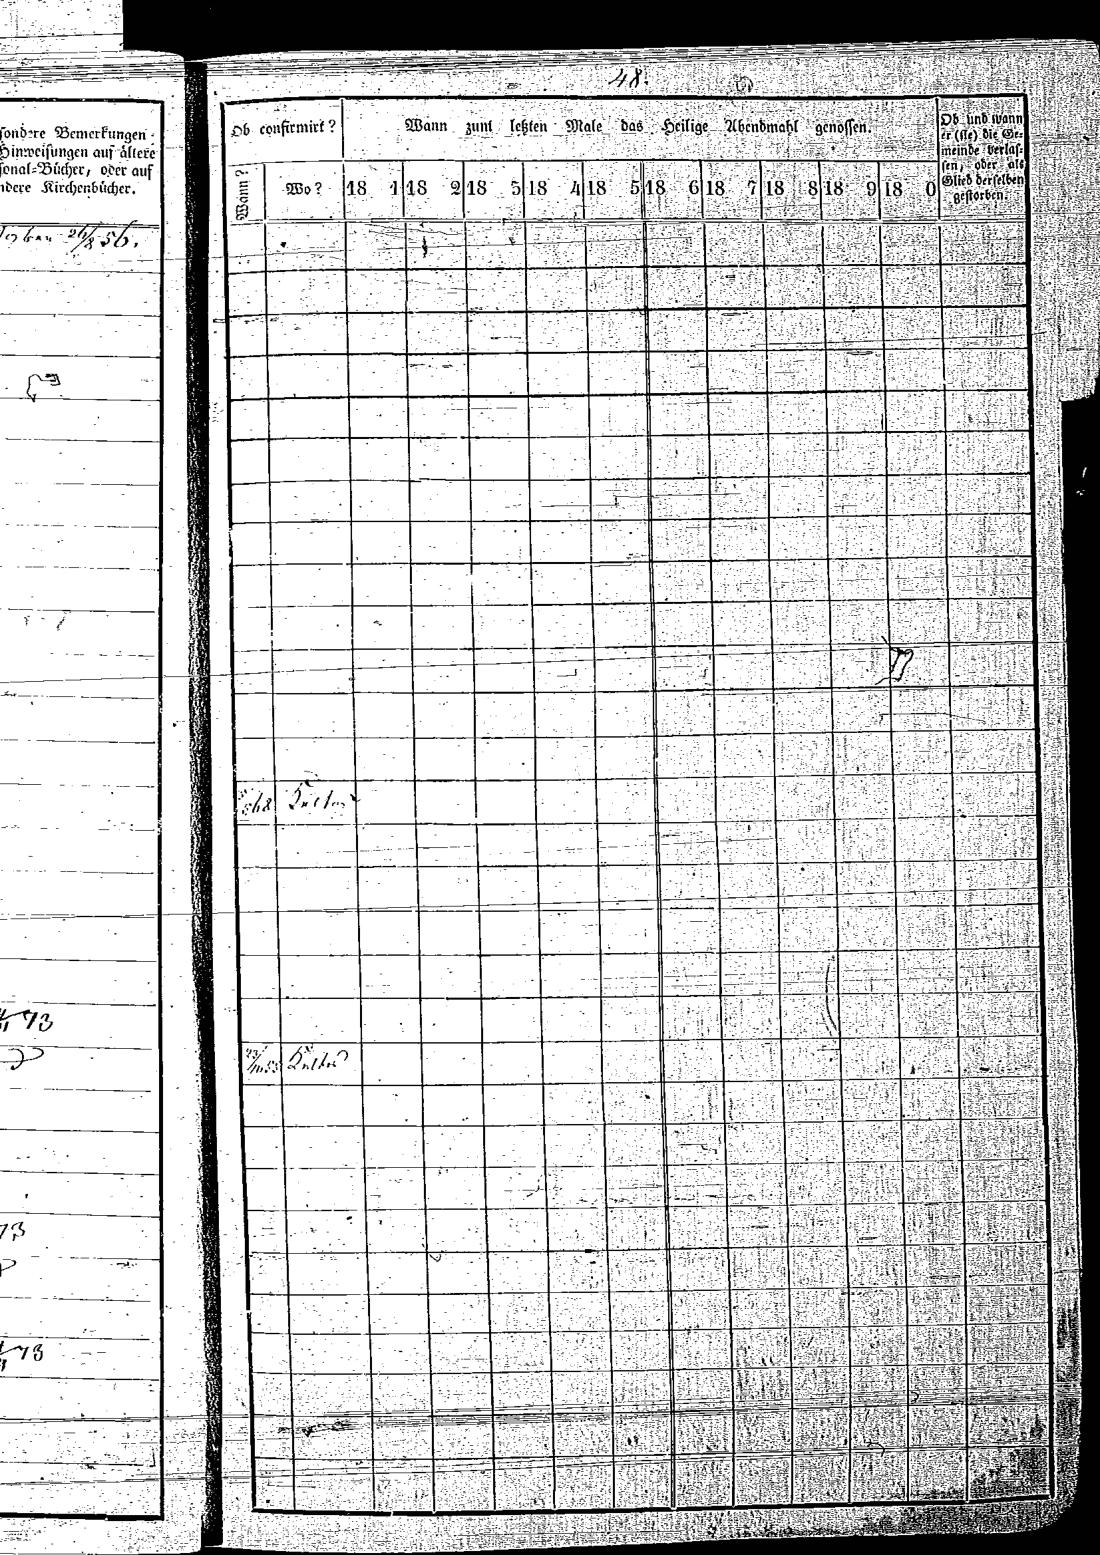 sondre Bemerkungen
Hinweisungen auf ältere
sonal-Bücher, oder auf
ndere Kirchenbücher.
26/8 56.
73
73
73
48.
Ob confirmirt?
Wann?
Wo?
Wann zum letzten Male das Heilige Abendmahl genossen.
18 1 18 2 18 3 18 4 18 5 18 6 18 7 18 8 18 9 18 0
Ob und wann
er (sie) die Ge-
meinde verlas-
sen, oder als
Glied derselben
gestorben.